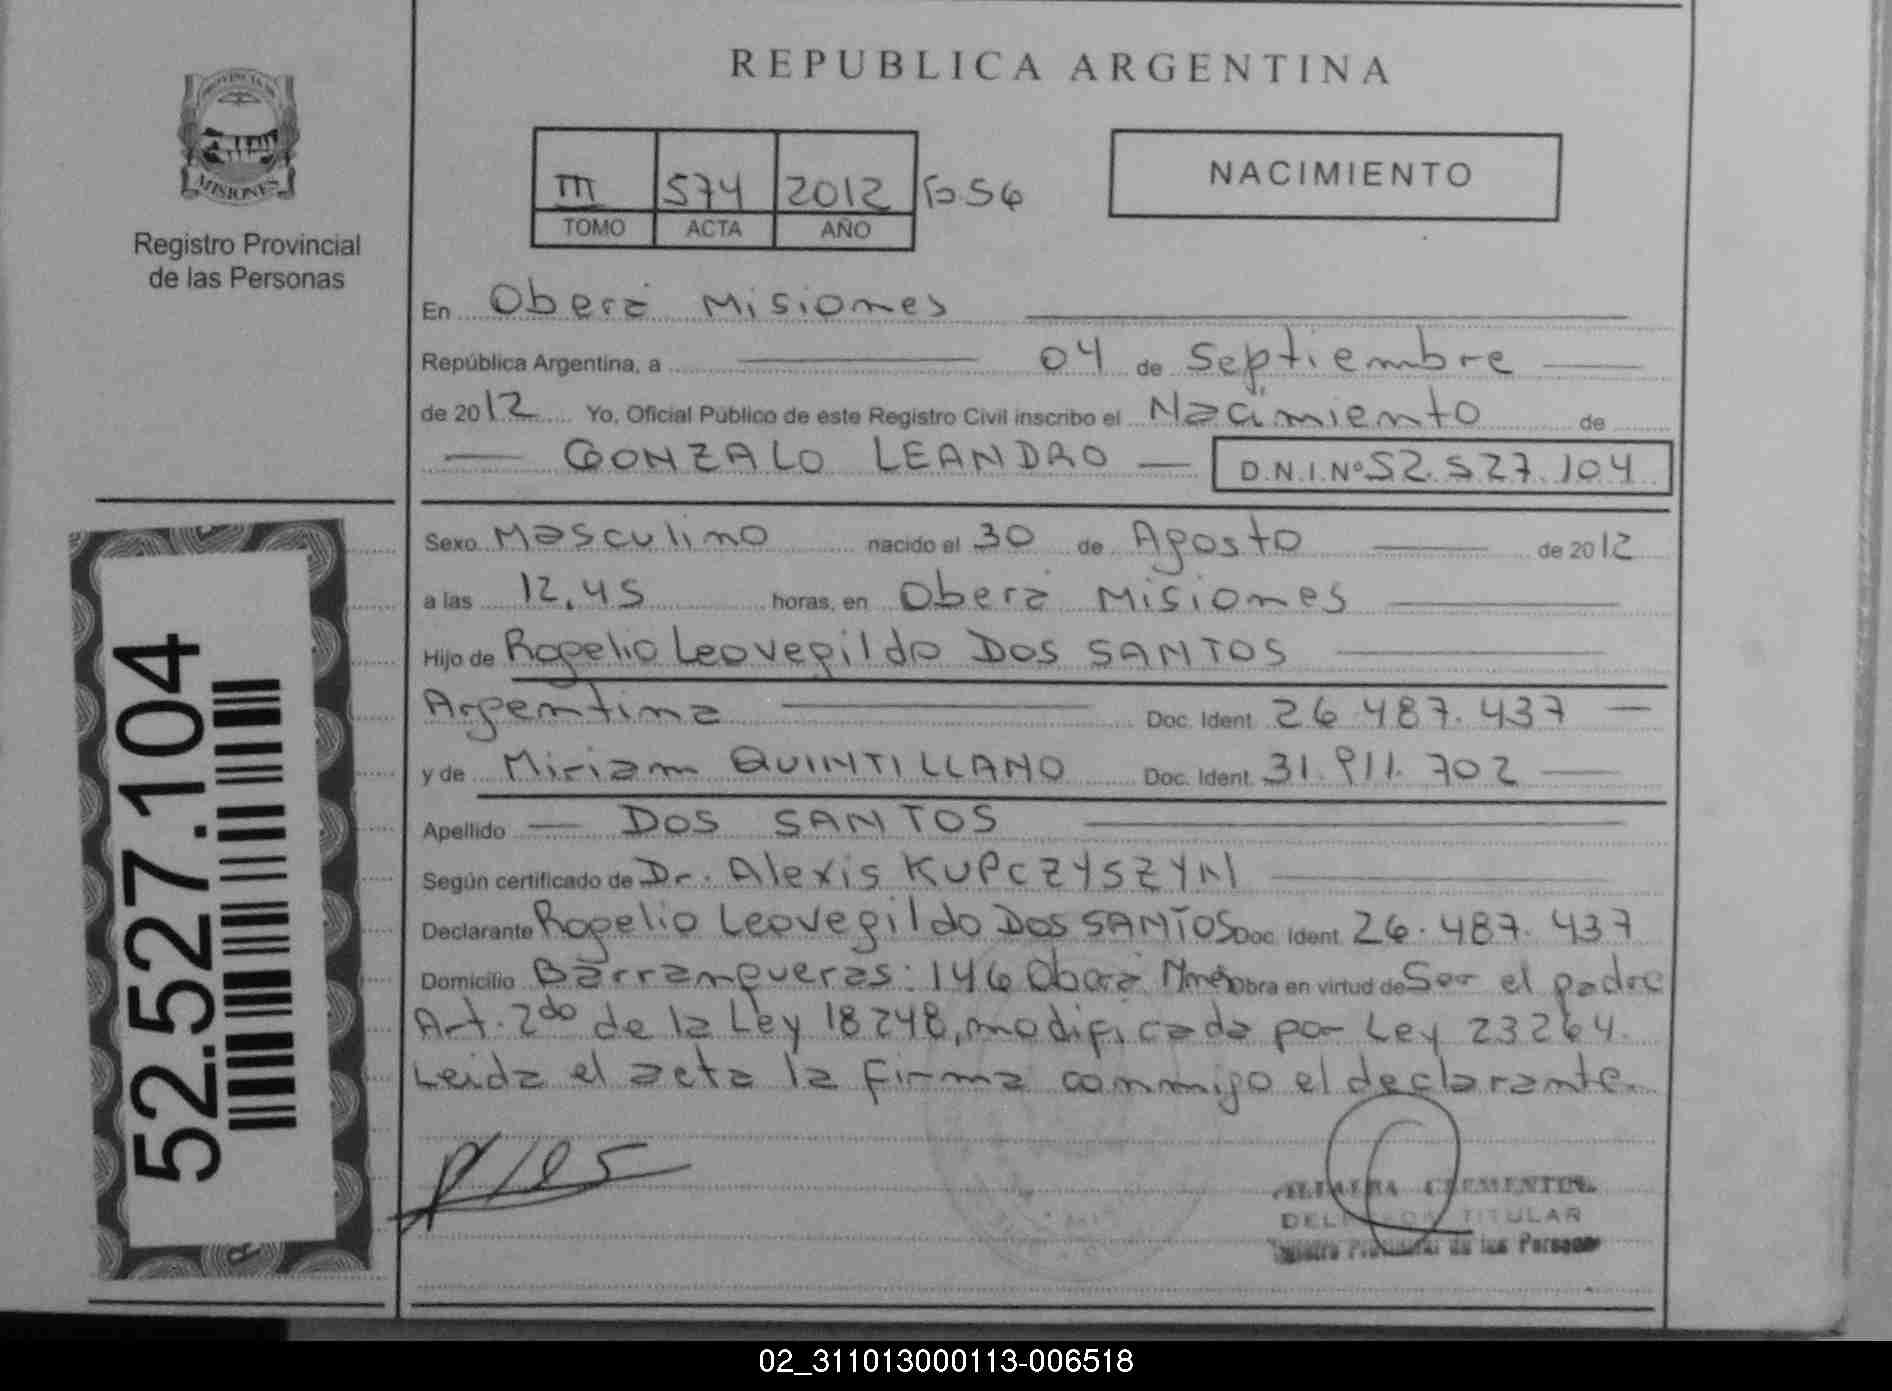 REPUBLICA ARGENTINA
PROVINCIA DE
MISIONES
Registro Provincial
de las Personas
III 574 2012 Fo 56
TOMO ACTA AÑO
NACIMIENTO
En Oberá Misiones
República Argentina, a 04 de Septiembre
de 2012 Yo, Oficial Público de este Registro Civil inscribo el Nacimiento de
GONZALO LEANDRO D.N.I.Nº 52.527.104
Sexo Masculino nacido el 30 de Agosto de 2012
a las 12,45 horas, en Oberá Misiones
Hijo de Rogelio Leovegildo DOS SANTOS
Argentina Doc. Ident. 26.487.437
y de Miriam QUINTILLANO Doc. Ident. 31.911.702
Apellido DOS SANTOS
Según certificado de Dr. Alexis KUPCZYSZYN
Declarante Rogelio Leovegildo DOS SANTOS Doc. Ident. 26.487.437
Domicilio Barranqueras: 146 Oberá Mnes Obra en virtud de Ser el padre
Art. 2do de la Ley 18248, modificada por Ley 23264.
Leida el acta la firma conmigo el declarante.
52.527.104
TITULAR
Registro Provincial de las Personas
02_311013000113-006518